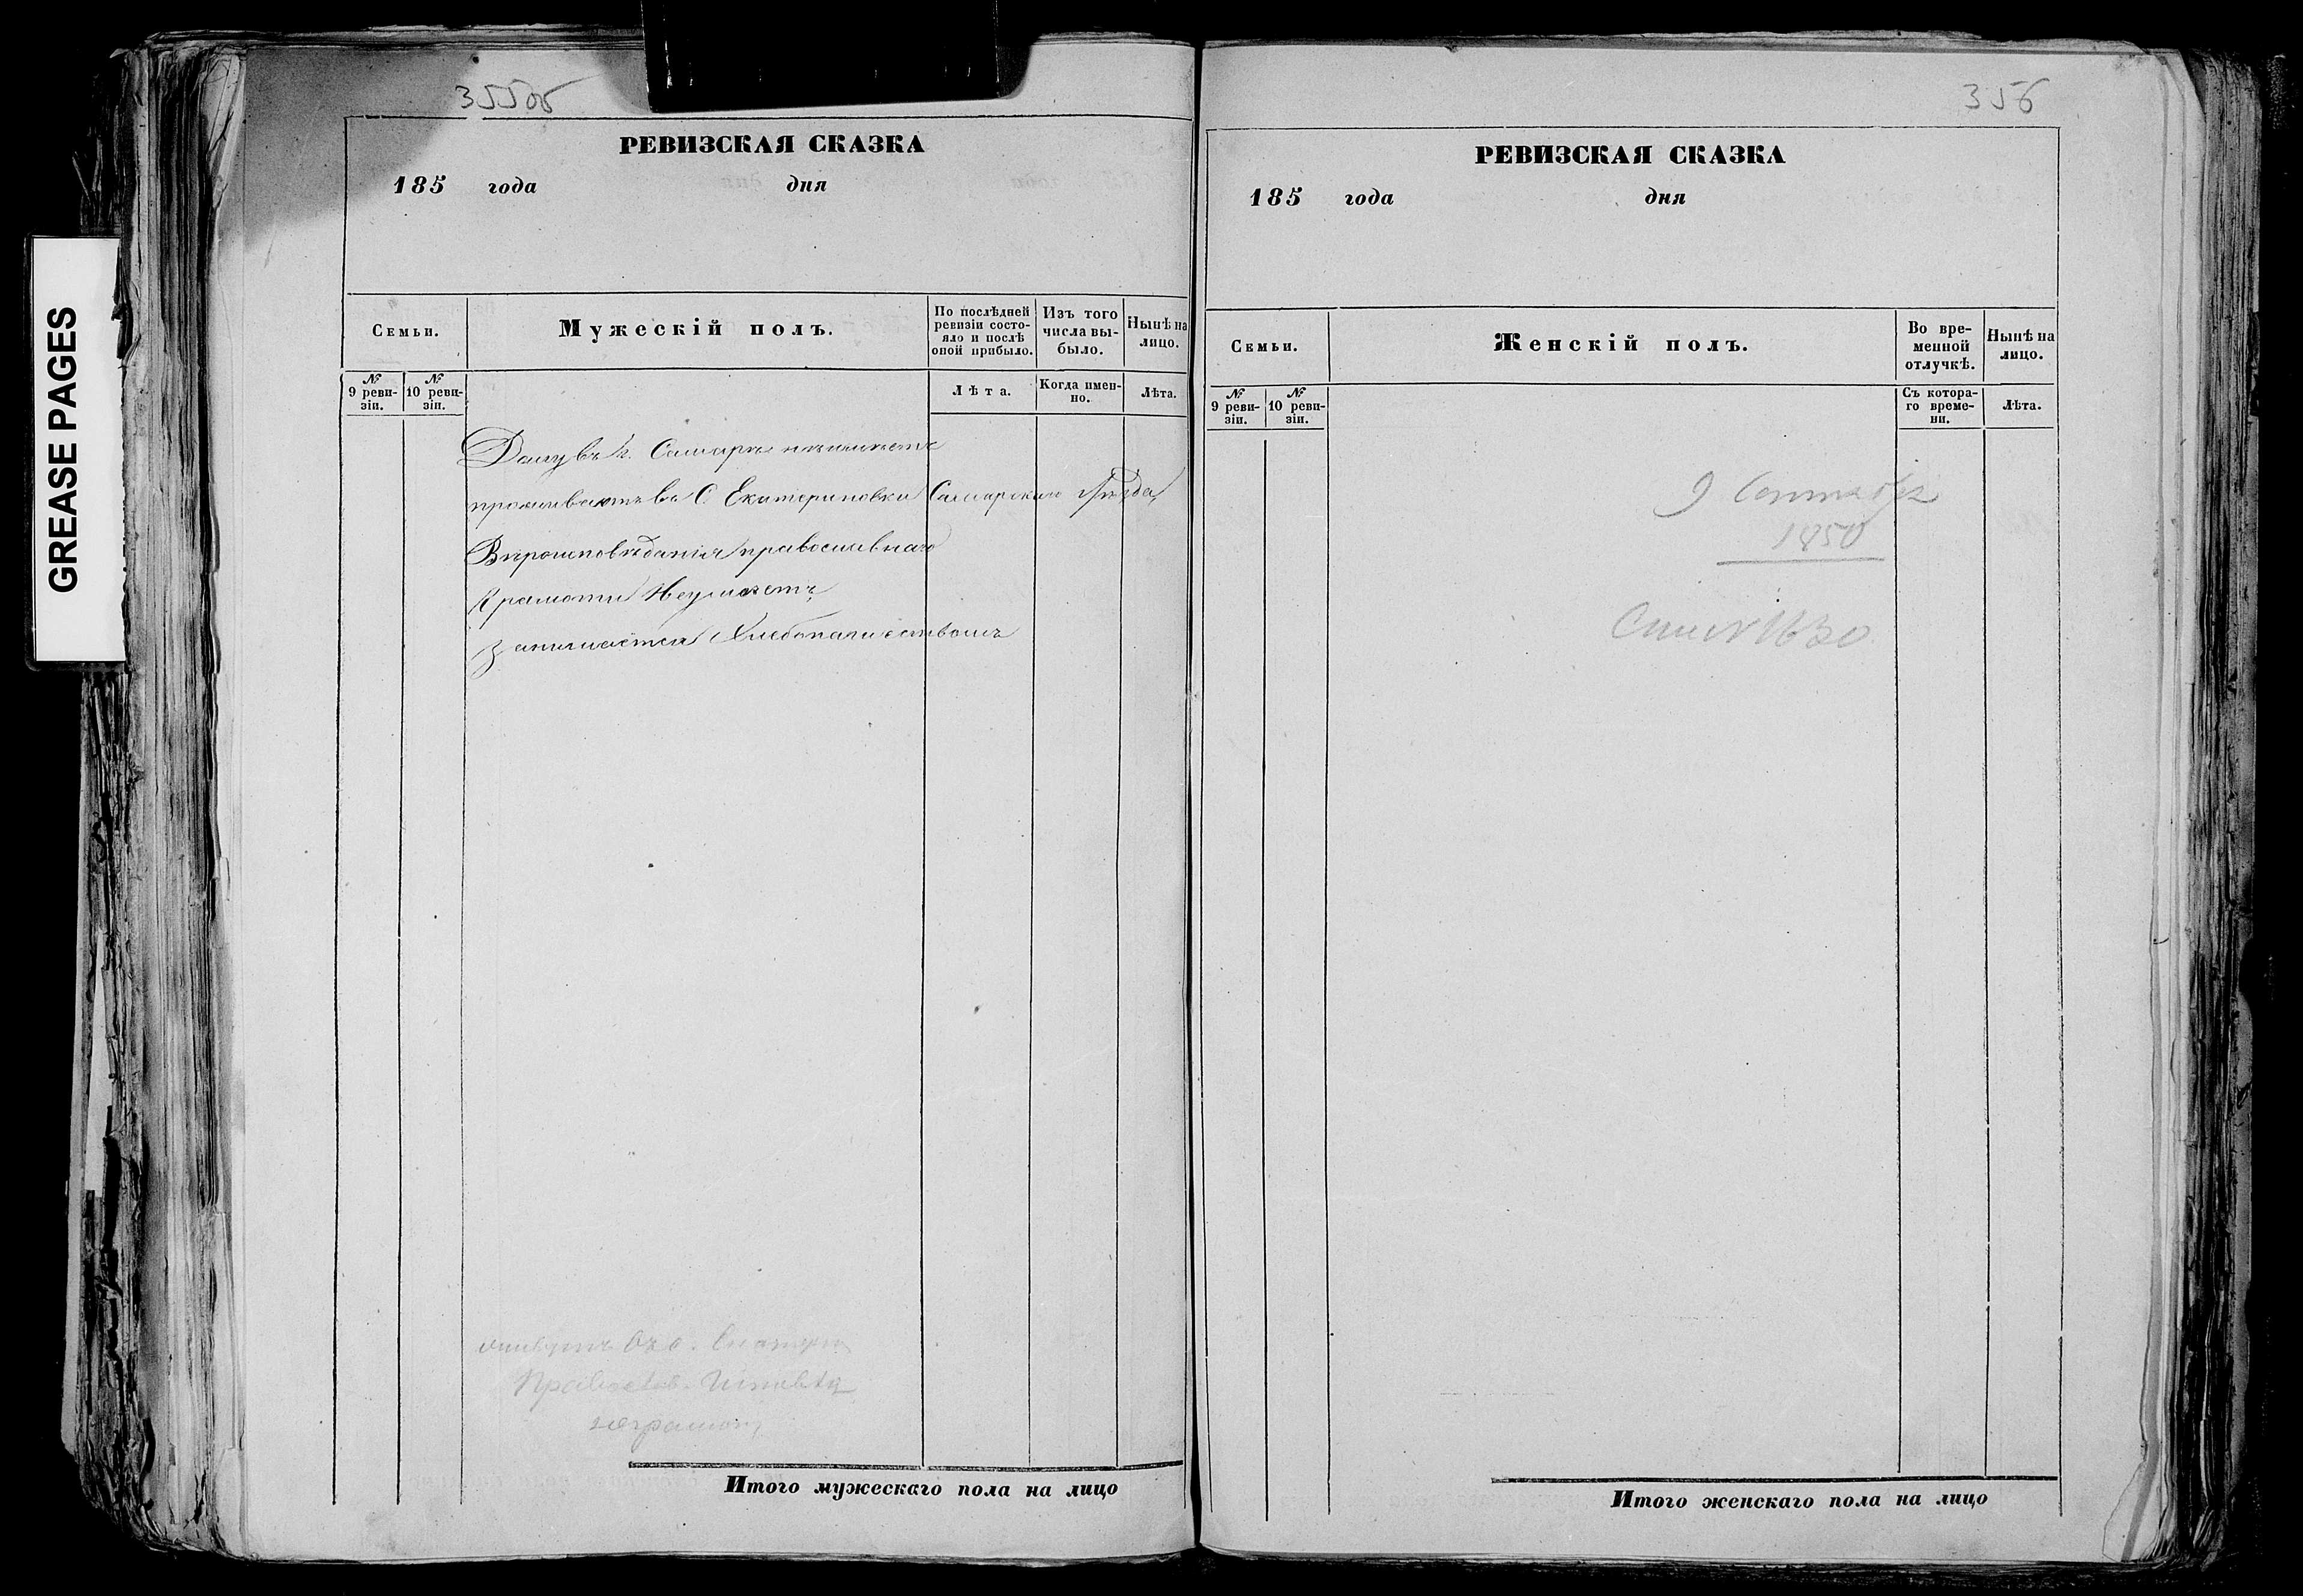 GREASE PAGES
355об
РЕВИЗСКАЯ СКАЗКА
185 года дня
Семьи.
Мужескій полъ.
По послѣдней ревизіи состояло и послѣ оной прибыло.
Изъ того числа выбыло.
Нынѣ на лицо.
№ 9 ревизіи.
№ 10 ревизіи.
Лѣта.
Когда именно.
Лѣта.
Дому въ г. Самарѣ неимѣетъ
проживаютъ въ С Екатериновки Самарскаго Уѣзда,
Вѣроисповѣданія православнаго
Грамоти Неумѣетъ
Занимается Хлебопашествомъ
Православ.
неграмот,
Итого мужескаго пола на лицо
356
РЕВИЗСКАЯ СКАЗКА
185 года дня
Семьи.
Женскій полъ.
Во временной отлучкѣ.
Нынѣ на лицо.
№ 9 ревизіи.
№ 10 ревизіи.
Съ котораго времени.
Лѣта.
9 Сентября
1850
1630
Итого женскаго пола на лицо